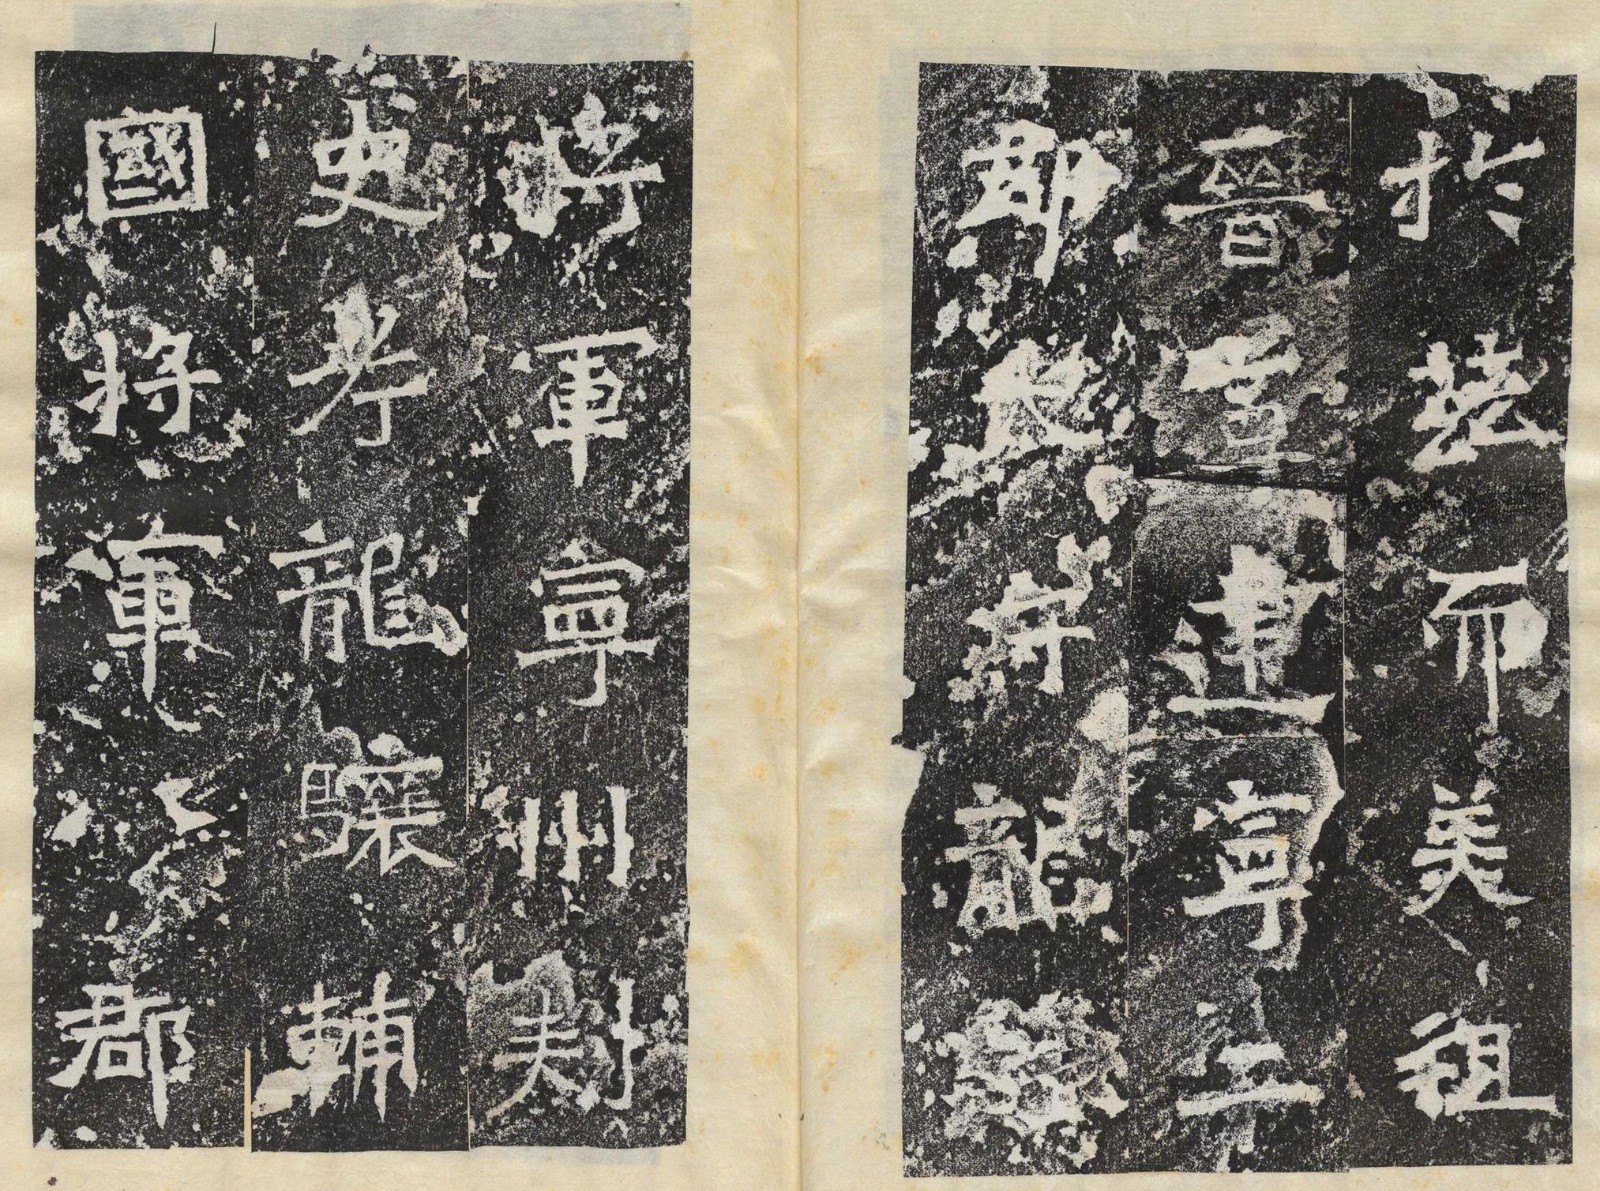 於茲而美祖
晉寧建寧二
郡太守龍驤
將軍寧州刺
史考龍驤輔
國將軍八郡